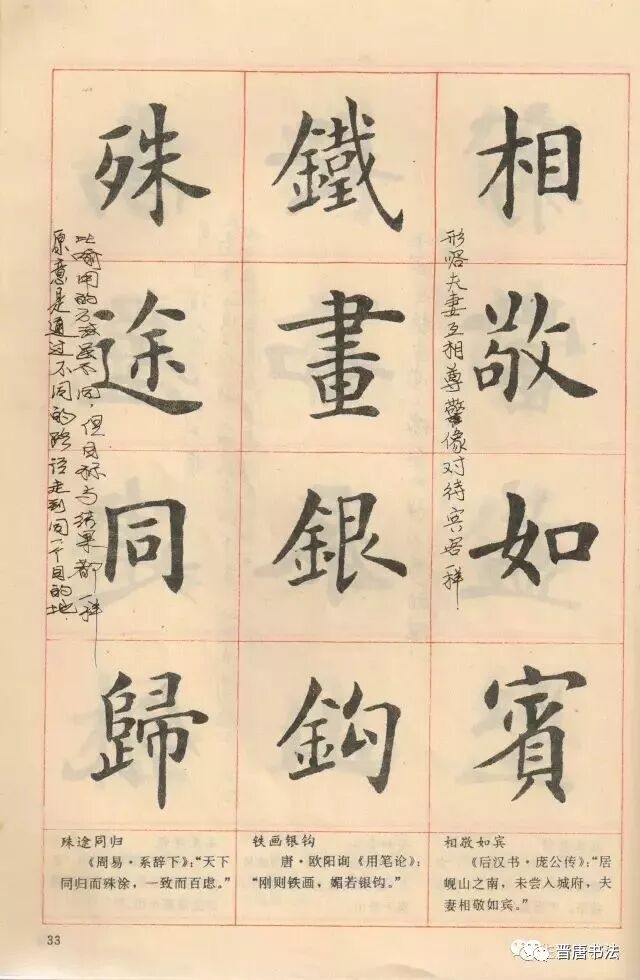 相敬如賓
形容夫妻互相尊警像对待宾客一样
鐵畫銀鈎
殊途同歸
比喻用的方法虽不同,但目标与结果都一样
原意是通过不同的路径走到同一个目的地
相敬如宾
《后汉书·庞公传》:“居
岘山之南,未尝入城府,夫
妻相敬如宾。”
铁画银钩
唐·欧阳询《用笔论》:
“刚则铁画,媚若银钩。”
殊途同归
《周易·系辞下》:“天下
同归而殊涂,一致而百虑。”
33
晋唐书法